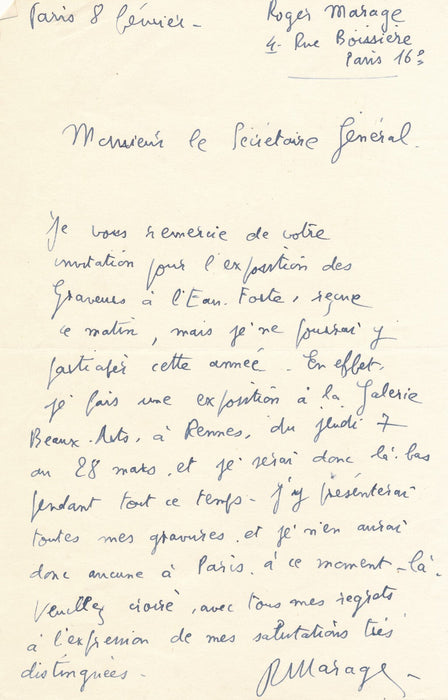 Paris 8 février -
Roger Marage
4. Rue Boissière
Paris 16e
Monsieur le Secrétaire Général.
Je vous remercie de votre
invitation pour l'exposition des
Graveurs à l'Eau. Forte, reçue
ce matin, mais je ne pourrai y
participer cette année. En effet,
je fais une exposition à la Galerie
Beaux-Arts, à Rennes, du jeudi 7
au 28 mars, et je serai donc là-bas
pendant tout ce temps - j'y présenterai
toutes mes gravures, et je n'en aurai
donc aucune à Paris, à ce moment-là -
Veuillez croire, avec tous mes regrets
à l'expression de mes salutations très
distinguées -
RMarage -